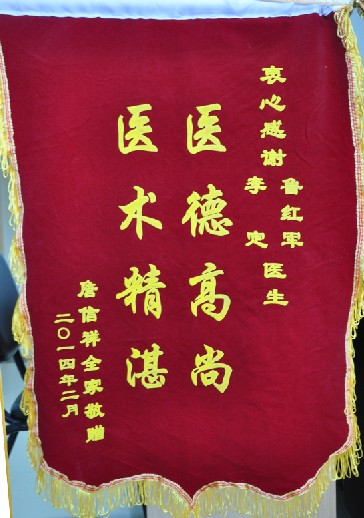 衷心感谢
鲁红军
李
医生
医德高尚
医术精湛
唐信祥全家敬赠
二〇一四年二月